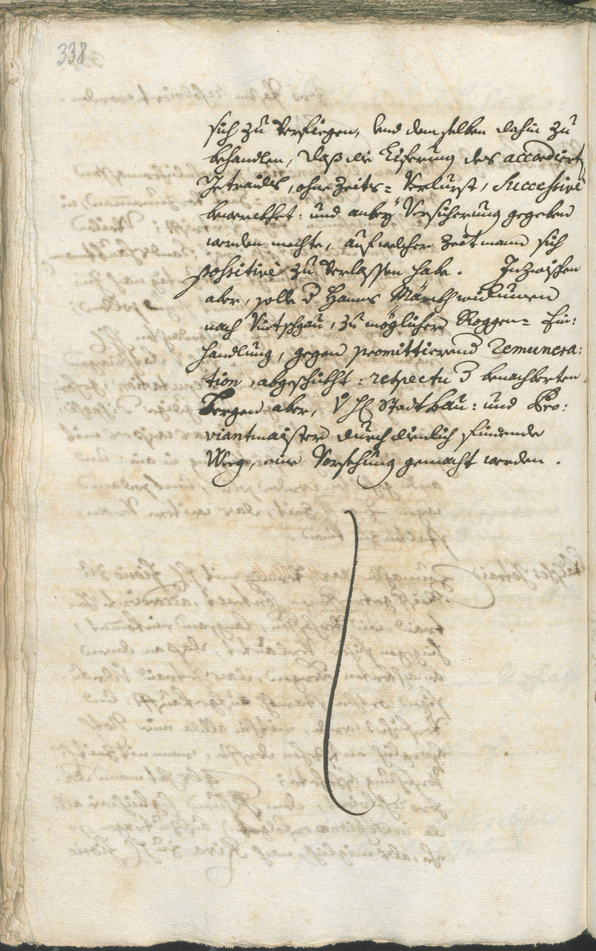 338
sich zu verfiegen, und demselben dahin zu
behandlen, daß die Liferung des accordierten
Getraids, ohne Zeits= Verlurst, Successivè
bewerckhet: und anbey Versicherung gegeben
werden mechte, auf welcher Zeit man sich
possitivè zu verlassen habe. Inzwischen
aber, solle d Hanns
nach Vintschgau, zu möglicher Roggen= Ein:
handlung, gegen promittierend Remunera:
tion, abgeschickht: respectu d benachberten
Bergen aber, V H Stadt Bau: und Pro:
viantmaister durch dienlich findende
Weeg, eine Vorsehung gemacht werden.